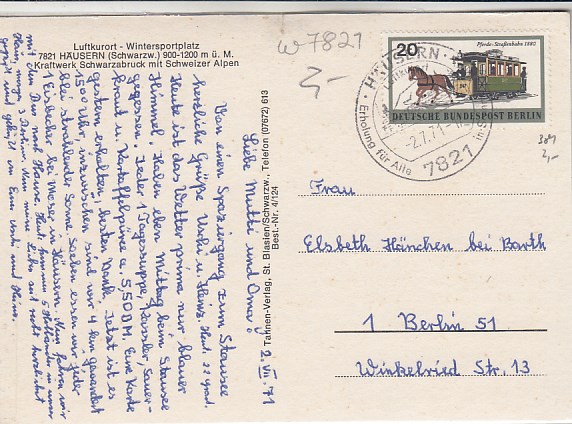 Luftkurort - Wintersportplatz
7821 HÄUSERN (Schwarzw.) 900-1200 m ü. M.
Kraftwerk Schwarzabruck mit Schweizer Alpen
w 7821
3,-
20
Pferde-Straßenbahn 1880
DEUTSCHE BUNDESPOST BERLIN
HÄUSERN
-2.7.71-
Erholung für Alle
7821
3,-
Tannen-Verlag, St. Blasien/Schwarzw., Telefon (07672) 613
Best.-Nr. 4/124
2. VII. 71
Liebe Mutti und Oma!
Von einem Spaziergang zum Stausee
herzliche Grüße Uschi u. Heinz. Hab. 22 Grad.
Heute ist das Wetter prima nur blauer
Himmel. Haben eben Mittag beim Stausee
gegessen. Jeder 1 Tagessuppe, Kassler Sauer-
kraut u. Kartoffelpüree a. 5,50 DM. Eine Karte
gestern erhalten, besten Dank. Jetzt ist es
1500 Uhr inzwischen sind wir 4 km gewandert
bei strahlender Sonne. Soeben essen wir jeder
1 Eisbecher bei Moser in Häusern. Nun fahren wir
mit dem Bus nach Hause. Heut kommen 5 Holländer in unser
Haus, morgen 2 Berliner. Nun seid lieb und recht herzlichst
gegrüßt und geküßt von Euren Uschi und Heinz.
Frau
Elsbeth Hänchen bei Barth
1 Berlin 51
Winkelried Str. 13